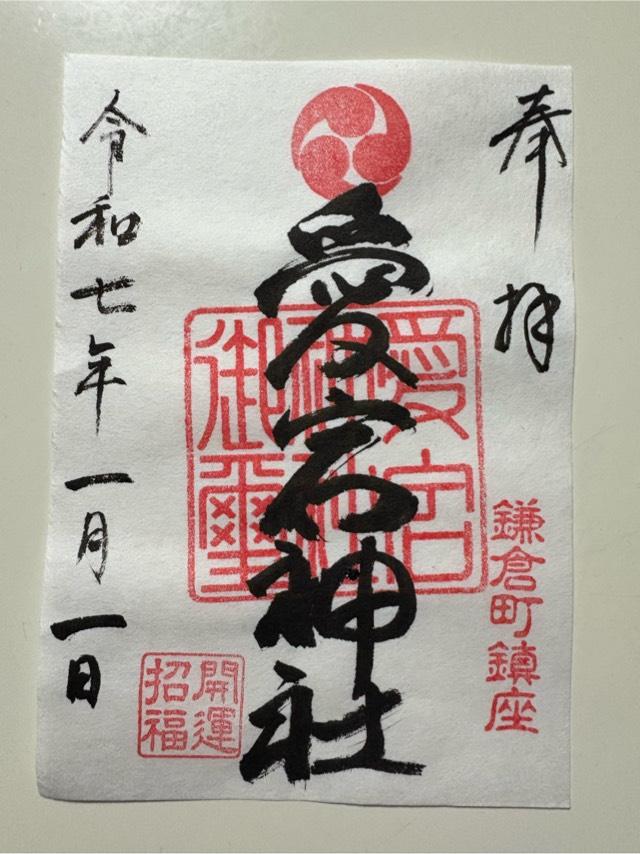 奉拝
鎌倉町鎮座
愛宕神社
愛宕
神社
御璽
開運
招福
令和七年一月一日